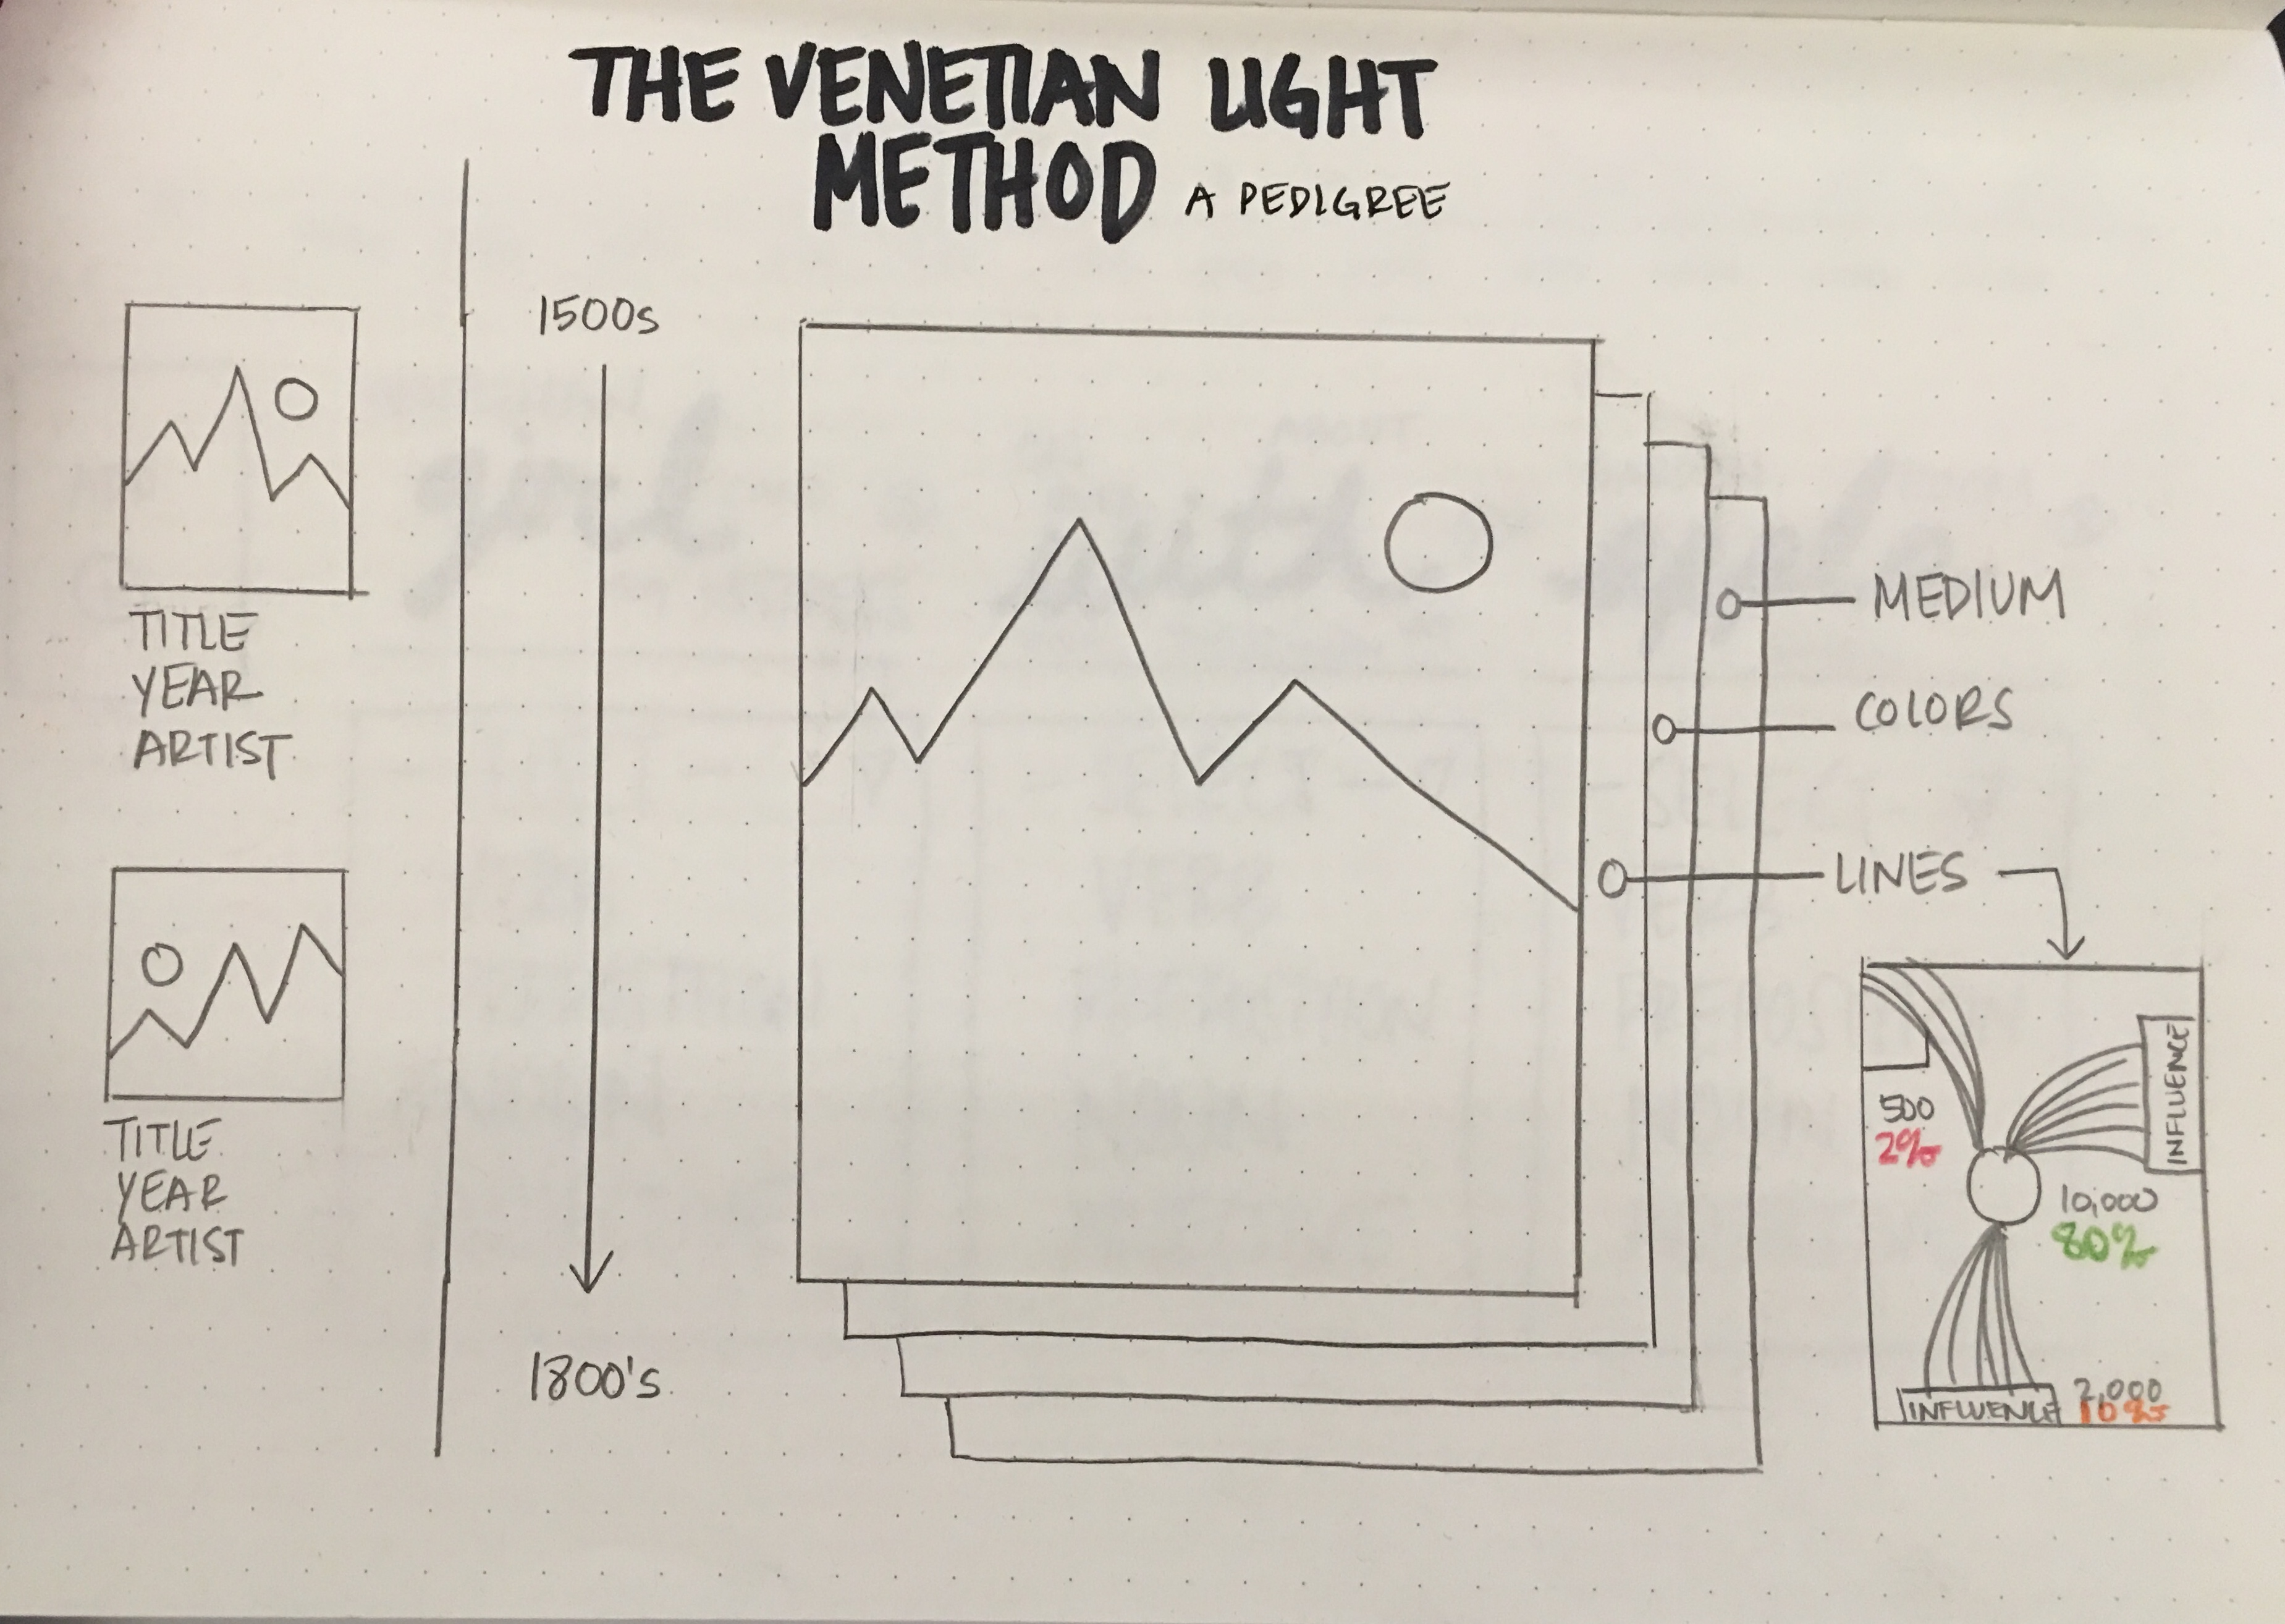 THE VENETIAN LIGHT
METHOD A PEDIGREE
TITLE
YEAR
ARTIST
TITLE
YEAR
ARTIST
1500s
1800's
MEDIUM
COLORS
LINES
INFLUENCE
500
2%
10,000
80%
INFLUENCE
2,000
10%